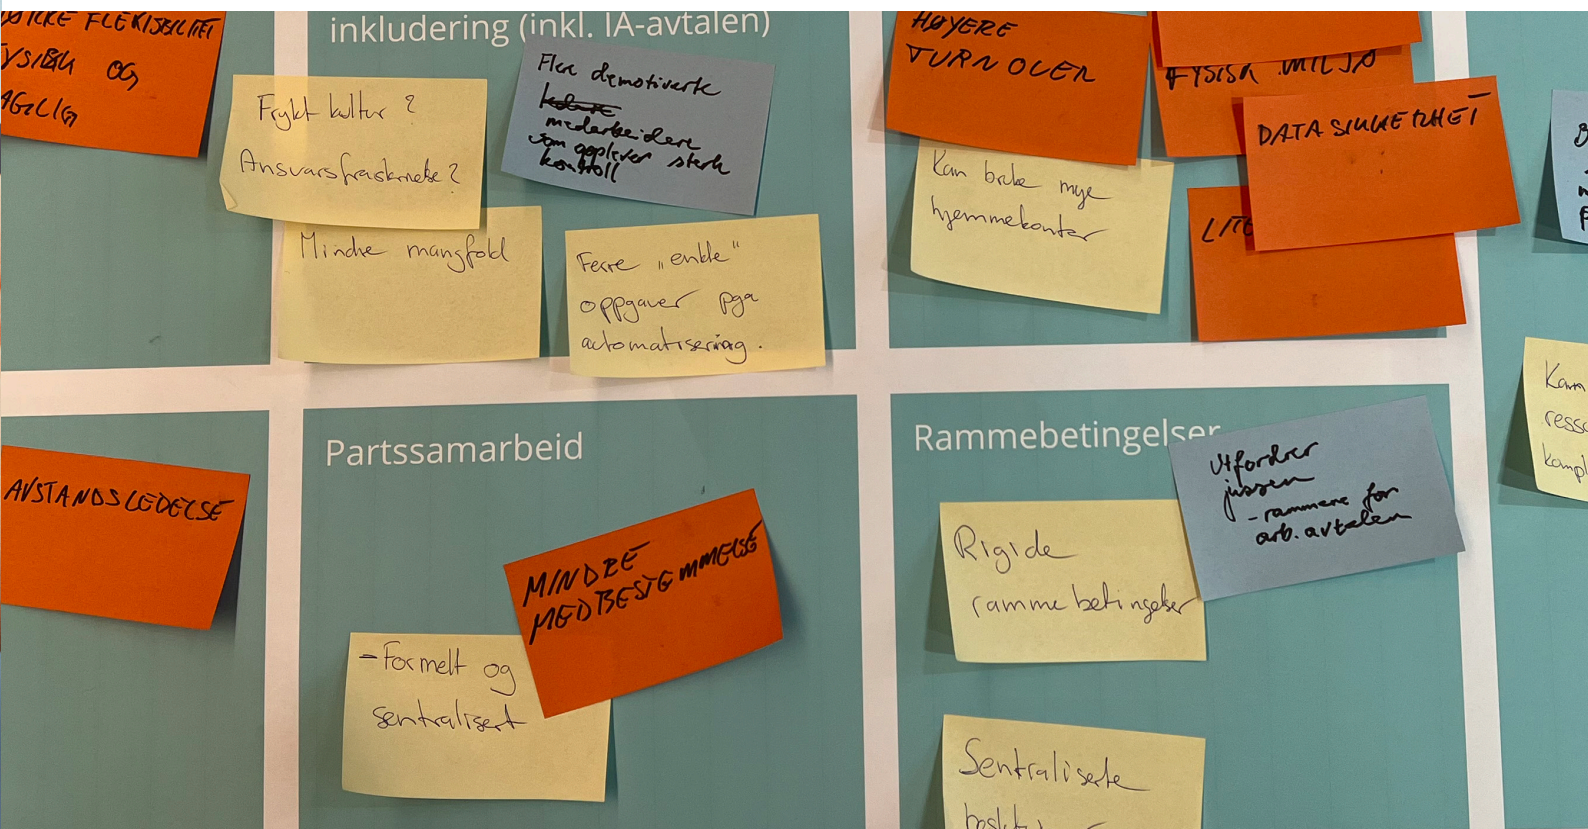 FLEKISBILITET
FYSISK OG
inkludering (inkl. IA-avtalen)
Frykt kultur ?
Ansvarsfraskrivelse ?
Flere demotiverte
medarbeidere
som opplever sterk
kontroll
Mindre mangfold
Færre „enkle"
oppgaver pga
automatisering.
HØYERE
TURNOVER
FYSISK MILJØ
DATASIKKERHET
Kan bruke mye
hjemmekontor
LITE
AVSTANDSLEDELSE
Partssamarbeid
MINDRE
MEDBESTEMMELSE
-Formelt og
sentralisert
Rammebetingelser
Utfordrer
jussen
- rammene for
arb.avtalen
Rigide
rammebetingelser
Sentraliserte